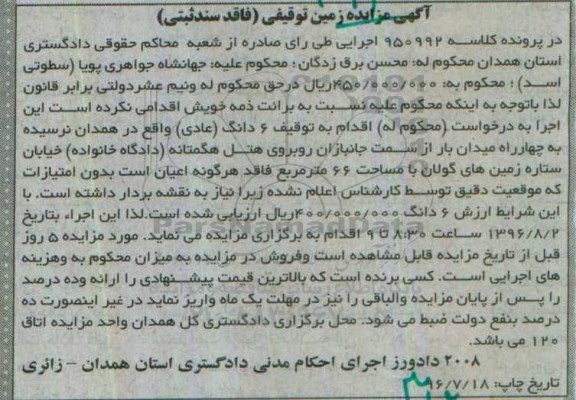 آگهی مزایده زمین توقیفی (فاقد سند ثبتی)
در پرونده کلاسه ۹۵۰۹۹۲ اجرایی طی رای صادره از شعبه محاکم حقوقی دادگستری
استان همدان محکوم له: محسن برق زدگان؛ محکوم علیه: جهانشاه جواهری پویا (سطوتی
اسد)؛ محکوم به: ۴۵۰/۰۰۰/۰۰۰ریال درحق محکوم له ونیم عشردولتی برابر قانون
لذا باتوجه به اینکه محکوم علیه نسبت به برائت ذمه خویش اقدامی نکرده است این
اجرا به درخواست (محکوم له) اقدام به توقیف ۶ دانگ (عادی) واقع در همدان نرسیده
به چهارراه میدان بار از سمت جانبازان روبروی هتل هگمتانه (دادگاه خانواده) خیابان
ستاره زمین های گولان با مساحت ۶۶ مترمربع فاقد هرگونه اعیان است بدون امتیازات
که موقعیت دقیق توسط کارشناس اعلام نشده زیرا نیاز به نقشه بردار داشته است. با
این شرایط ارزش ۶ دانگ ۴۰۰/۰۰۰/۰۰۰ریال ارزیابی شده است.لذا این اجراء بتاریخ
۱۳۹۶/۸/۲ ساعت ۸:۳۰ تا ۹ اقدام به برگزاری مزایده می نماید. مورد مزایده ۵ روز
قبل از تاریخ مزایده قابل مشاهده است وفروش در مزایده به میزان محکوم به وهزینه
های اجرایی است. کسی برنده است که بالاترین قیمت پیشنهادی را ارائه وده درصد
را پس از پایان مزایده والباقی را نیز در مهلت یک ماه واریز نماید در غیر اینصورت ده
درصد بنفع دولت ضبط می شود. محل برگزاری دادگستری کل همدان واحد مزایده اتاق
۱۲۰ می باشد.
۲۰۰۸ دادورز اجرای احکام مدنی دادگستری استان همدان - زائری
تاریخ چاپ: ۹۶/۷/۱۸